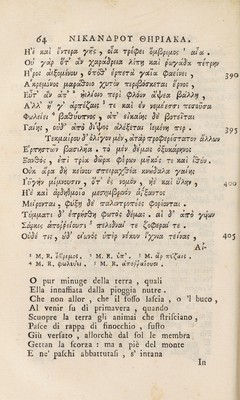 64 ΝΙΚΑΝΔΡΟΥ ΘΗΡΙΑΚΑ.
Ἠὲ καὶ ἔντερα γῆς, οἷα τρέφει ὄμβριμος ¹ αἶα.
Οὐ γὰρ ὅτ' ἂν χαράδρεια λίπῃ καὶ ῥωγάδα πέτρην
Ἦρος ἀεξομένου, ὁπόθ' ἑρπετὰ γαῖα φαείνει, 390
Ἀκρεμόνος μαράθοιο χυτὸν περιβόσκεται ἔρνος,
Εὖτ' ἂν ἀπ' ² ἠελίοιο περὶ φλόον ἄψεα βάλλῃ,
Ἀλλ' ἥ γ' ἀρπέζαις ³ τε καὶ ἐν νεμέεσσι πεσοῦσα
Φωλεύει ⁴ βαθύυπνος, ἀπ' εἰκαίης δὲ βοτεῖται
Γαίης, οὐδ' ἀπὸ δίψος ἀλέξεται ἱεμένη περ. 395
Τεκμαίρου δ' ὀλίγον μὲν, ἀτὰρ προφερέστατον ἄλλων
Ἑρπηστῶν βασιλῆα. τὸ μὲν δέμας ὀξυκάρηνος
Ξανθὸς, ἐπὶ τρία δῶρα φέρων μῆκός τε καὶ ἰθύν.
Οὐκ ἄρα δὴ κείνου σπειραχθέα κνώδαλα γαίης
Ἰυγὴν μίμνουσιν, ὅτ' ἐς νομὸν, ἠὲ καὶ ὕλην 400
Ἠὲ καὶ ἀρδηθμοῖο μεσημβρινὸν ἀΐξαντος
Μείρονται, φύζῃ δὲ παλιντροπέες φορέονται.
Τύμματι δ' ἐπρήσθη φωτὸς δέμας. αἱ δ' ἀπὸ γυίων
Σάρκες ἀποῤῥείουσι ⁵ πελιδναί τε ζοφεραί τε.
Οὐδέ τις, οὐδ' οἰωνὸς ὑπὲρ νέκυν ἴχνια τείνας, 405
Αἰ-
¹ M. R. ὄβριμος. ² M. R. ὑπ'. ³ M. R. ἂρ πέζαις.
⁴ M. R. φωλειύει. ⁵ M. R.
O pur minuge della terra, quali
Ella innaffiata dalla pioggia nutre.
Che non allor, che il fosso lascia, o 'l buco,
Al venir su di primavera, quando
Scuopre la terra gli animai che strisciano,
Pasce di rappa di finocchio, fusto
Giù versato, allorchè dal sol le membra
Gettan la scorza: ma a piè del monte
E ne' paschi abbattutasi, s' intana
In